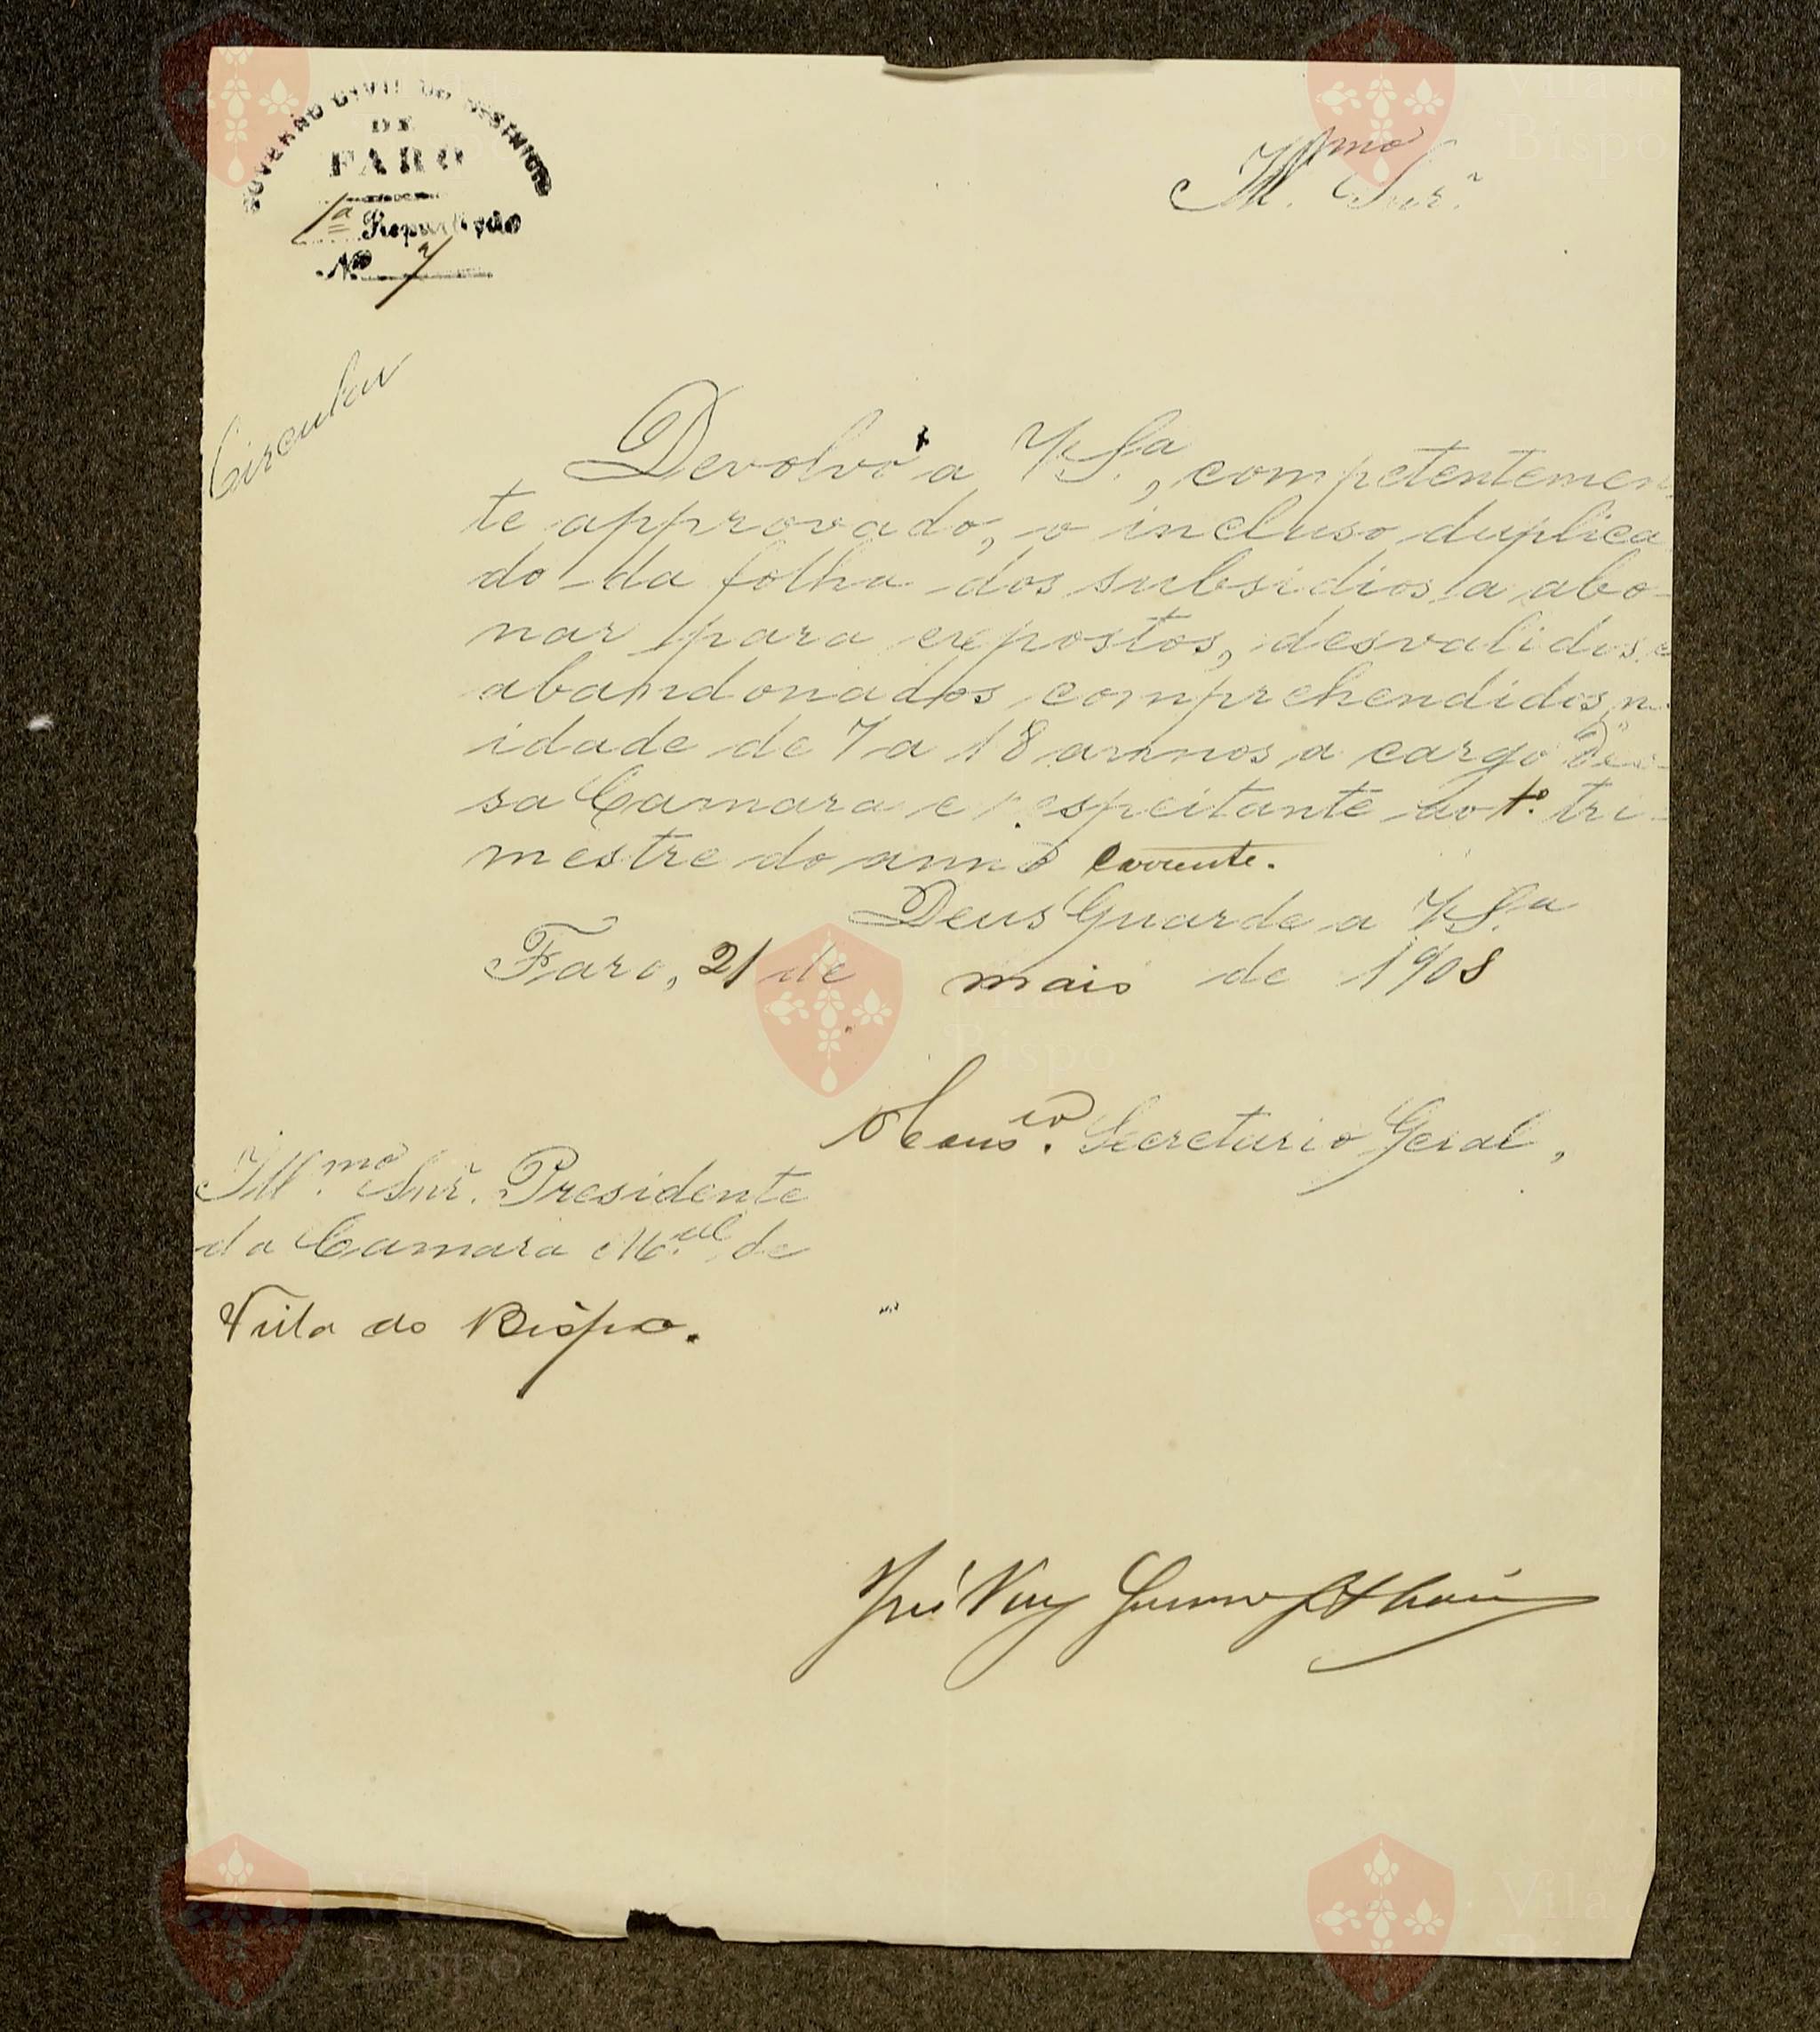 GOVERNO CIVIL DO DISTRICTO
DE
FARO
1ª Repartição
Nº 7
Illmo Snr.
Circular
Devolvo a V. Sª, competentemen
te approvado, o incluso duplica
do da folha dos subsidios a abo-
nar para expostos, desvalidos e
abandonados comprehendidos n
idade de 7 a 18 annos a cargo des-
sa Camara e respeitante ao 1º tri-
mestre do anno corrente.
Deus Guarde a V. Sª
Faro, 21 de maio de 1908
Secretario Geral,
Illmo Snr. Presidente
da Camara M.al de
Villa do Bispo.
José
Vila do Bispo